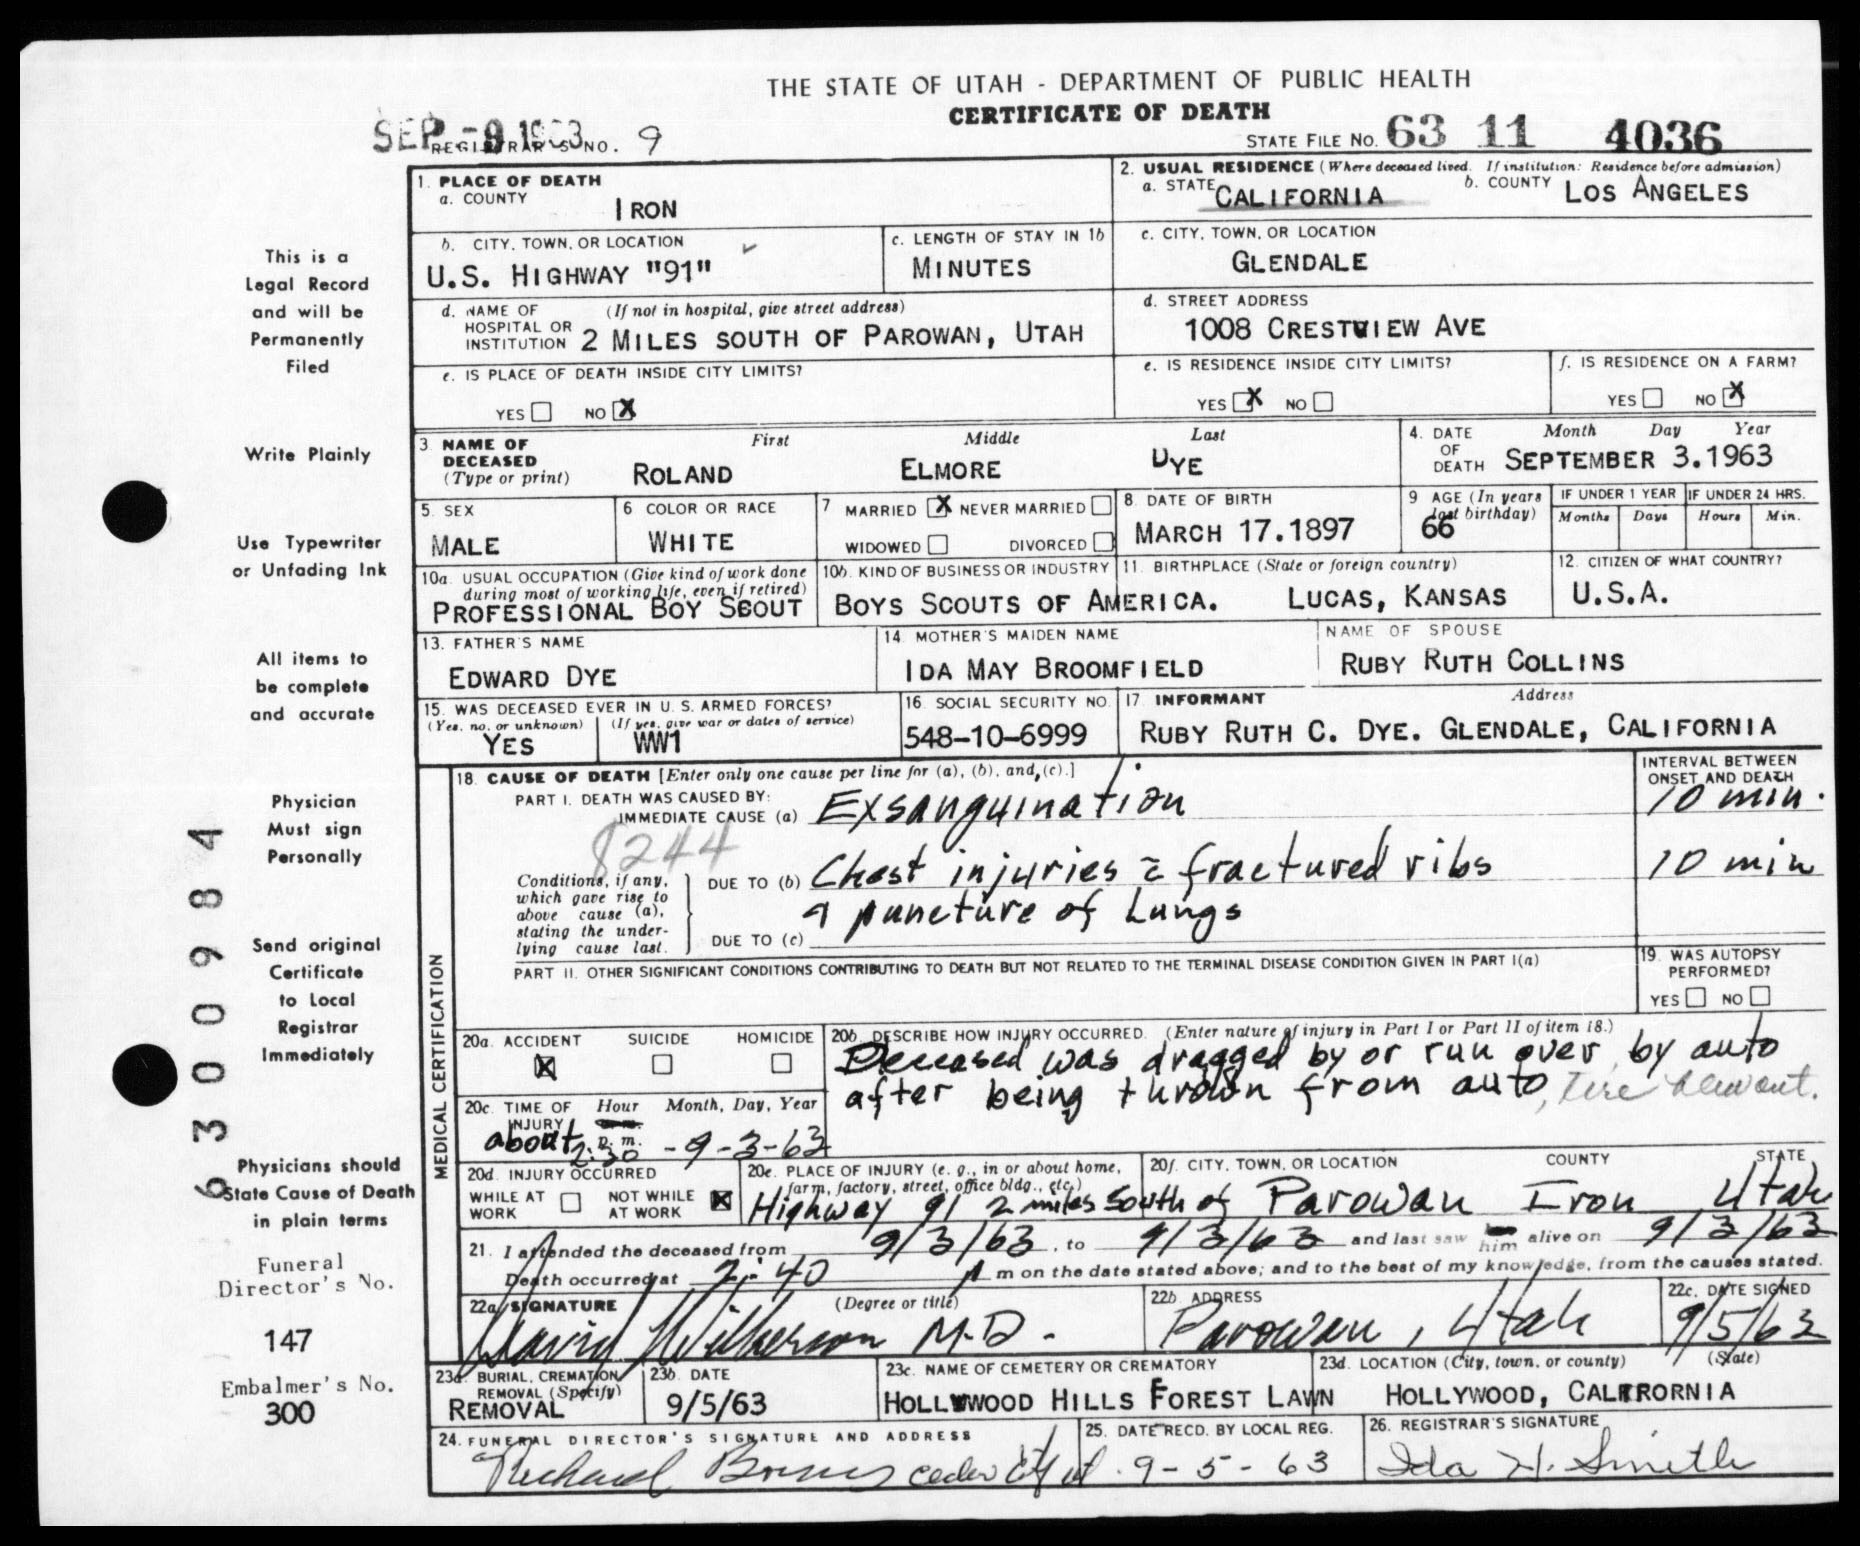 THE STATE OF UTAH - DEPARTMENT OF PUBLIC HEALTH
CERTIFICATE OF DEATH
SEP -9 1963
REGISTRAR'S NO. 9
STATE FILE NO. 63 11 4036
1. PLACE OF DEATH
a. COUNTY
IRON
2. USUAL RESIDENCE (Where deceased lived. If institution: Residence before admission)
a. STATE CALIFORNIA b. COUNTY LOS ANGELES
b. CITY, TOWN, OR LOCATION
U.S. HIGHWAY "91"
c. LENGTH OF STAY IN 1b
MINUTES
c. CITY, TOWN, OR LOCATION
GLENDALE
d. NAME OF HOSPITAL OR INSTITUTION (If not in hospital, give street address)
2 MILES SOUTH OF PAROWAN, UTAH
d. STREET ADDRESS
1008 CRESTVIEW AVE
e. IS PLACE OF DEATH INSIDE CITY LIMITS?
YES NO X
e. IS RESIDENCE INSIDE CITY LIMITS?
YES X NO
f. IS RESIDENCE ON A FARM?
YES NO X
3 NAME OF DECEASED (Type or print)
First Middle Last
ROLAND ELMORE DYE
4. DATE OF DEATH Month Day Year
SEPTEMBER 3.1963
5. SEX
MALE
6 COLOR OR RACE
WHITE
7 MARRIED X NEVER MARRIED
WIDOWED DIVORCED
8. DATE OF BIRTH
MARCH 17.1897
9 AGE (In years last birthday)
66
IF UNDER 1 YEAR
Months Days
IF UNDER 24 HRS.
Hours Min.
10a. USUAL OCCUPATION (Give kind of work done during most of working life, even if retired)
PROFESSIONAL BOY SCOUT
10b. KIND OF BUSINESS OR INDUSTRY
BOYS SCOUTS OF AMERICA.
11. BIRTHPLACE (State or foreign country)
LUCAS, KANSAS
12. CITIZEN OF WHAT COUNTRY?
U.S.A.
13. FATHER'S NAME
EDWARD DYE
14. MOTHER'S MAIDEN NAME
IDA MAY BROOMFIELD
NAME OF SPOUSE
RUBY RUTH COLLINS
15. WAS DECEASED EVER IN U.S. ARMED FORCES?
(Yes, no, or unknown) (If yes, give war or dates of service)
YES WW1
16. SOCIAL SECURITY NO.
548-10-6999
17. INFORMANT Address
RUBY RUTH C. DYE. GLENDALE, CALIFORNIA
MEDICAL CERTIFICATION
18. CAUSE OF DEATH [Enter only one cause per line for (a), (b), and, (c).]
INTERVAL BETWEEN ONSET AND DEATH
PART I. DEATH WAS CAUSED BY:
IMMEDIATE CAUSE (a) Exsanguination 10 min.
8244
Conditions, if any, which gave rise to above cause (a), stating the underlying cause last.
DUE TO (b) Chest injuries c fractured ribs 10 min
& puncture of Lungs
DUE TO (c)
PART II. OTHER SIGNIFICANT CONDITIONS CONTRIBUTING TO DEATH BUT NOT RELATED TO THE TERMINAL DISEASE CONDITION GIVEN IN PART I(a)
19. WAS AUTOPSY PERFORMED?
YES NO
20a. ACCIDENT SUICIDE HOMICIDE
X
20b. DESCRIBE HOW INJURY OCCURRED. (Enter nature of injury in Part I or Part II of item 18.)
Deceased was dragged by or run over by auto
after being thrown from auto, tire blewout.
20c. TIME OF INJURY Hour Month, Day, Year
about 2:30 p.m. -9-3-63
20d. INJURY OCCURRED
WHILE AT WORK NOT WHILE AT WORK X
20e. PLACE OF INJURY (e. g., in or about home, farm, factory, street, office bldg., etc.)
Highway 91 2 miles South of
20f. CITY, TOWN, OR LOCATION COUNTY STATE
Parowan Iron Utah
21. I attended the deceased from 9/3/63, to 9/3/63 and last saw him alive on 9/3/63
Death occurred at 2:40 P m on the date stated above; and to the best of my knowledge, from the causes stated.
22a. SIGNATURE (Degree or title)
David Wilkerson M.D.
22b. ADDRESS
Parowan, Utah
22c. DATE SIGNED
9/5/63
23a. BURIAL, CREMATION, REMOVAL (Specify)
REMOVAL
23b. DATE
9/5/63
23c. NAME OF CEMETERY OR CREMATORY
HOLLYWOOD HILLS FOREST LAWN
23d. LOCATION (City, town, or county) (State)
HOLLYWOOD, CALFRORNIA
24. FUNERAL DIRECTOR'S SIGNATURE AND ADDRESS
Richard Cedar City Ut.
25. DATE RECD. BY LOCAL REG.
9-5-63
26. REGISTRAR'S SIGNATURE
Ida H. Smith
This is a
Legal Record
and will be
Permanently
Filed
Write Plainly
Use Typewriter
or Unfading Ink
All items to
be complete
and accurate
Physician
Must sign
Personally
Send original
Certificate
to Local
Registrar
Immediately
Physicians should
State Cause of Death
in plain terms
Funeral
Director's No.
147
Embalmer's No.
300
6300984